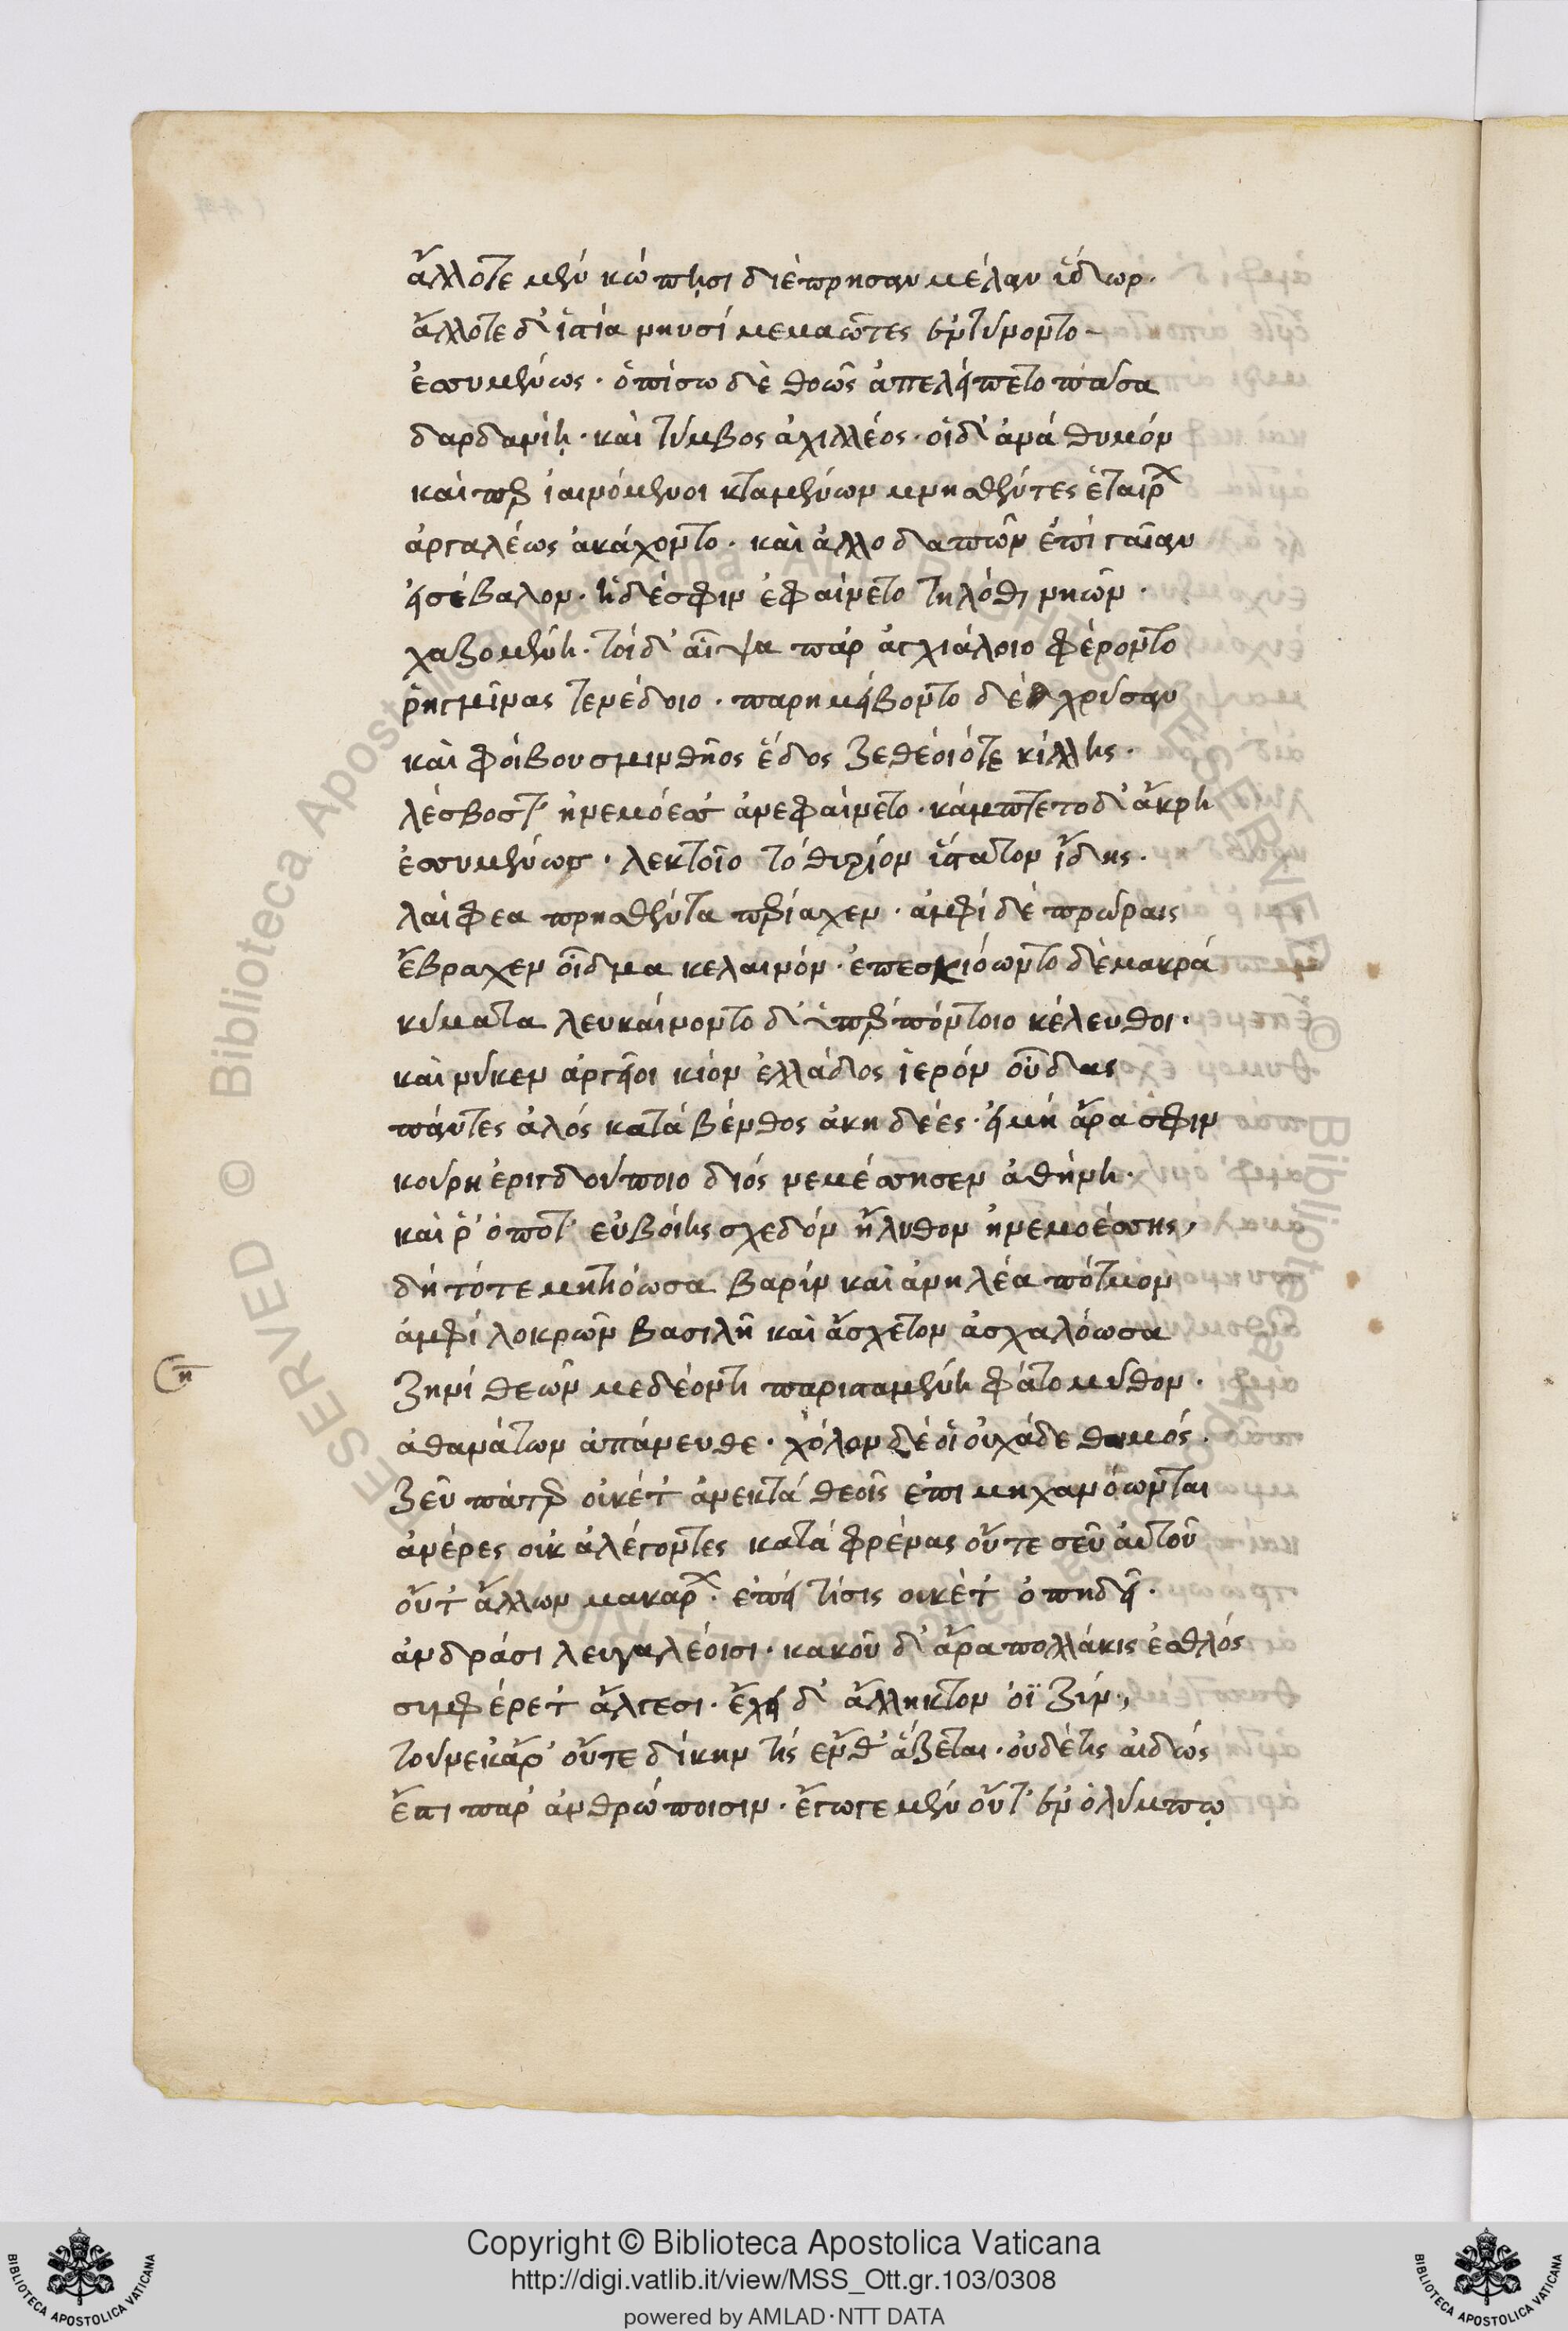 ἄλλοτε μὲν κώπῃσι διέπρησαν μέλαν ὕδωρ.
ἄλλοτε δ' ἱστία νηυσὶ μεμαῶτες ἐντύνοντο
ἐσσυμένως. ὀπίσω δὲ θοῶς ἀπελείπετο πᾶσα
δαρδανίη. καὶ τύμβος ἀχιλλέος. οἱ δ' ἀνὰ θυμόν
καὶ περ ἰαινόμενοι κταμένων μνησθέντες ἑταίρων
ἀργαλέως ἀκάχοντο. καὶ ἀλλοδαπῶν ἐπὶ γαῖαν
εἰσέβαλον. ἡ δέ σφιν ἐφαίνετο τηλόθι νηῶν.
χαζομένη. τοὶ δ' αἶψα παρ ἀγχιάλοιο φέροντο
ῥηγμῖνας τενέδοιο. παρημείβοντο δὲ χρύσαν
καὶ φοίβου σμινθῆος ἕδος ζεθέοιό τε κίλλης.
λέσβος τ' ἠνεμόεσσ' ἀνεφαίνετο. κάμπτετο δ' ἄκρη
ἐσσυμένως. λεκτοῖο τόθι ῥίον ὕστατον ἴδης.
λαίφεα πρησθέντα περίαχεν. ἀμφὶ δὲ πρώραις
ἔβραχεν οἶδμα κελαινόν. ἐπεσκιόωντο δὲ μακρά
κύματα λευκαίνοντο δ' ὑπὲρ πόντοιο κέλευθοι.
καὶ νύκεν ἀργεῖοι κίον ἑλλάδος ἱερὸν οὖδας
πάντες ἁλός κατὰ βένθος ἀκηδέες. εἰ μὴ ἄρα σφιν
κούρη ἐριγδούποιο διός νεμέσσησεν ἀθήνη.
καὶ ῥ' ὁπότ' εὐβοίης σχεδὸν ἤλυθον ἠνεμοέσσης,
δὴ τότε μητιόωσα βαρὺν καὶ ἀνηλέα πότμον
ἀμφὶ λοκρῶν βασιλῆ καὶ ἄσχετον ἀσχαλόωσα
ζηνὶ θεῶν μεδέοντι παρισταμένη φάτο μῦθον.
ἀθανάτων ἀπάνευθε. χόλον δέ οἱ οὐχάδε θυμός.
ζεῦ πάτερ οὐκέτ' ἀνεκτά θεοῖς ἐπιμηχανόωνται
ἀνέρες οὐκ ἀλέγοντες κατὰ φρένας οὔτε σεῦ αὐτοῦ
οὔτ' ἄλλων μακάρων. ἐπεὶ τίσις οὐκέτ' ὀπηδεῖ.
ἀνδράσι λευγαλέοισι. κακοῦ δ' ἄρα πολλάκις ἐσθλός
συμφέρετ' ἄλγεσι. ἔχει δ' ἄλληκτον ὀϊζύν,
τούνεκ' ἄρ' οὔτε δίκην τίς ἔνθ' ἅζεται. οὐδέ τις αἰδώς
ἔστι παρ' ἀνθρώποισιν. ἔγωγε μὲν οὔτ' ἐν ὀλύμπῳ
Copyright © Biblioteca Apostolica Vaticana
http://digi.vatlib.it/view/MSS_Ott.gr.103/0308
powered by AMLAD·NTT DATA